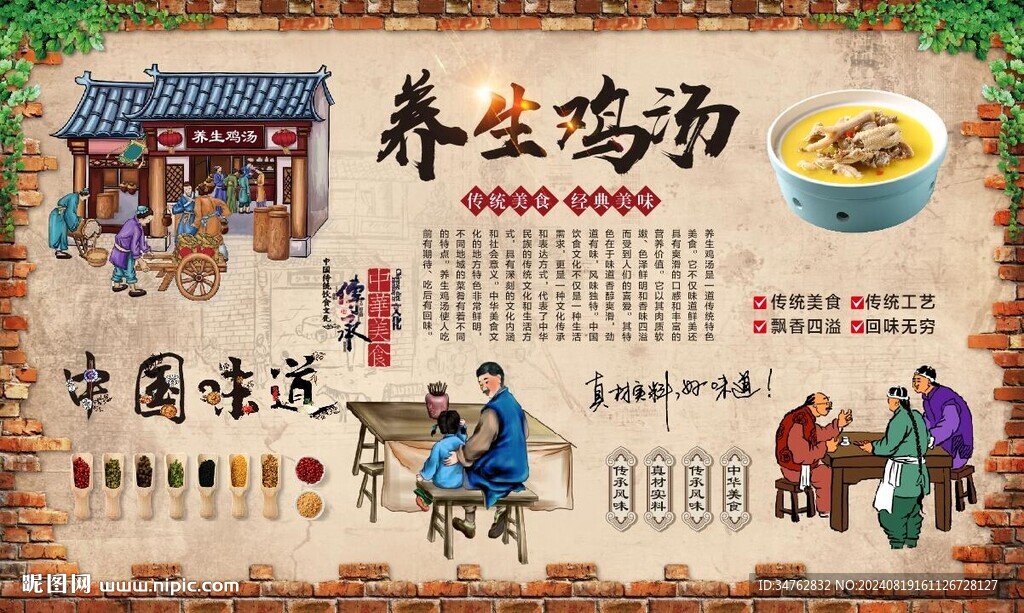 养生鸡汤
养生鸡汤
传统美食 经典美味
养生鸡汤是一道传统特色
美食。它不仅味道鲜美还
具有爽滑的口感和丰富的
营养价值。它以其肉质软
嫩、色泽鲜明和香味四溢
而受到人们的喜爱。其特
色在于味道香醇爽滑，劲
道有味，风味独特。中国
饮食文化不仅是一种生活
需求，更是一种文化传承
和表达方式，代表了中华
民族的传统文化和生活方
式，具有深刻的文化内涵
和社会意义。中华美食文
化的地方特色非常鲜明，
不同地域的菜肴有着不同
的特点。养生鸡汤使人吃
前有期待、吃后有回味。
传统美食 传统工艺
飘香四溢 回味无穷
中国传统饮食文化
传承
中華美食
文化
中国味道
真材实料,好味道!
传承风味
真材实料
传承风味
中华美食
昵图网 www.nipic.com
ID:34762832 NO:20240819161126728127